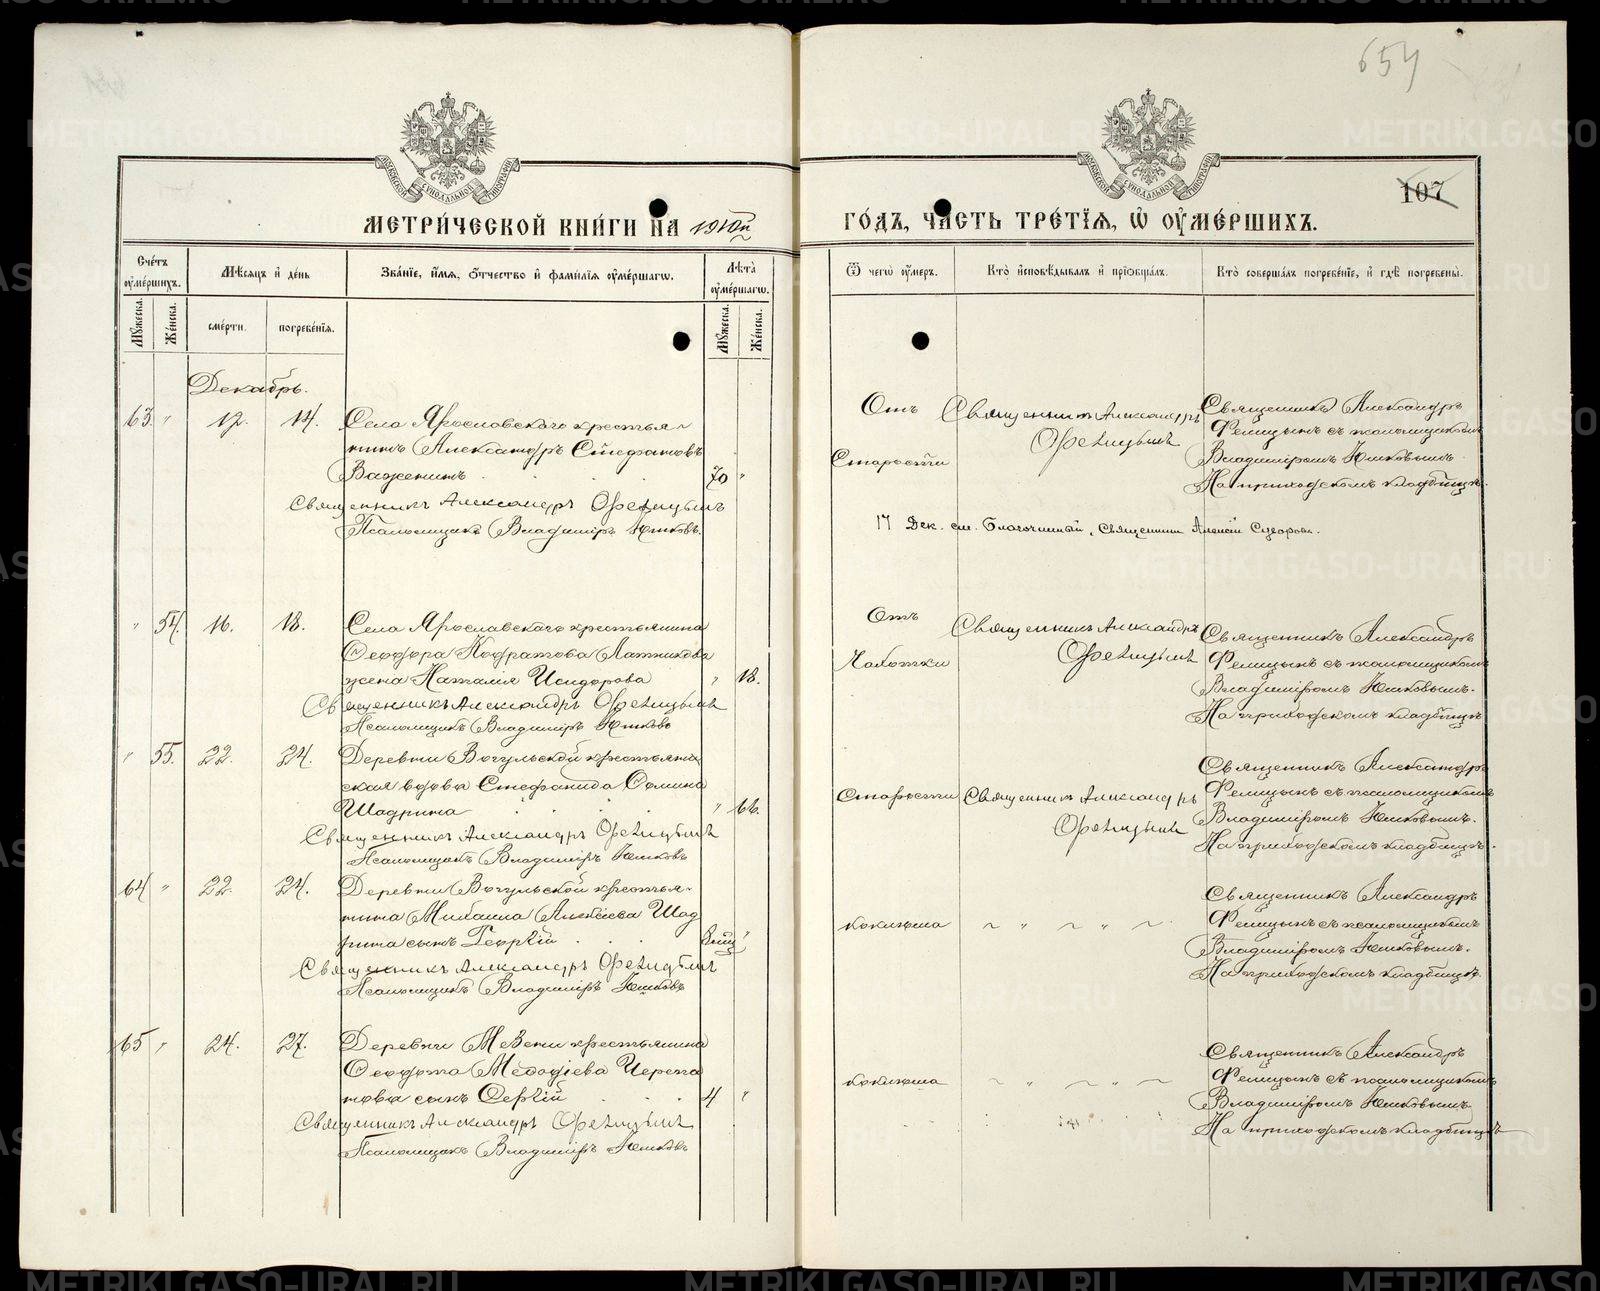 654
107
МЕТРИЧЕСКОЙ КНИГИ НА 1910й
ГОДЪ, ЧАСТЬ ТРЕТІЯ, Ѡ ОУМЕРШИХЪ.
Счетъ оумершихъ.
Мѣсяцъ и день
Званіе, имя, отчество и фамилія оумершагѡ.
Лѣта оумершагѡ.
Ѿ чегѡ оумеръ.
Кто исповѣдывалъ и пріобщалъ.
Кто совершалъ погребеніе, и гдѣ погребены.
Мужеска.
Женска.
смерти.
погребенія.
Мужеска.
Женска.
Декабрь.
63 " 12. 14. Села Ярославскаго крестья-
нинъ Александръ Стефановъ
Важенинъ 70 "
Священникъ Александръ Фелицынъ
Псаломщикъ Владиміръ Юшковъ.
Отъ
Старости
Священникъ Александръ
Фелицынъ
Священникъ Александръ
Фелицынъ съ псаломщикомъ
Владиміромъ Юшковымъ.
На приходскомъ кладбищѣ.
17 Дек. см. Благочинный, Священникъ Алексій Сугоровъ.
" 54. 16. 18. Села Ярославскаго крестьянина
Ѳеодора Кодратова Латникова
жена Наталія Исидорова " 18.
Священникъ Александръ Фелицынъ
Псаломщикъ Владиміръ Юшковъ
Отъ
Чахотки
Священникъ Александръ
Фелицынъ
Священникъ Александръ
Фелицынъ съ псаломщикомъ
Владиміромъ Юшковымъ.
На приходскомъ кладбищѣ
" 55. 22. 24. Деревни Вогульской крестьян
ская вдова Стефанида Ѳомина
Шадрина " 66.
Священникъ Александръ Фелицынъ
Псаломщикъ Владиміръ Юшковъ
Старости
Священникъ Александръ
Фелицынъ
Священникъ Александръ
Фелицынъ съ псаломщикомъ
Владиміромъ Юшковымъ.
На приходскомъ кладбищѣ.
64 " 22. 24. Деревни Вогульской крестья-
нина Михаила Алексіева Шад
рина сынъ Георгій "
Священникъ Александръ Фелицынъ
Псаломщикъ Владиміръ Юшковъ
коклюша
~ " ~ " ~
Священникъ Александръ
Фелицынъ съ псаломщикомъ
Владиміромъ Юшковымъ.
На приходскомъ кладбищѣ.
65 " 24. 27. Деревни Мезени крестьянина
Ѳеодота Меѳодіева Черепа
нова сынъ Сергій 4 "
Священникъ Александръ Фелицынъ
Псаломщикъ Владиміръ Юшковъ
коклюша
~ " ~ " ~
Священникъ Александръ
Фелицынъ съ псаломщикомъ
Владиміромъ Юшковымъ
На приходскомъ кладбищѣ
METRIKI.GASO-URAL.RU